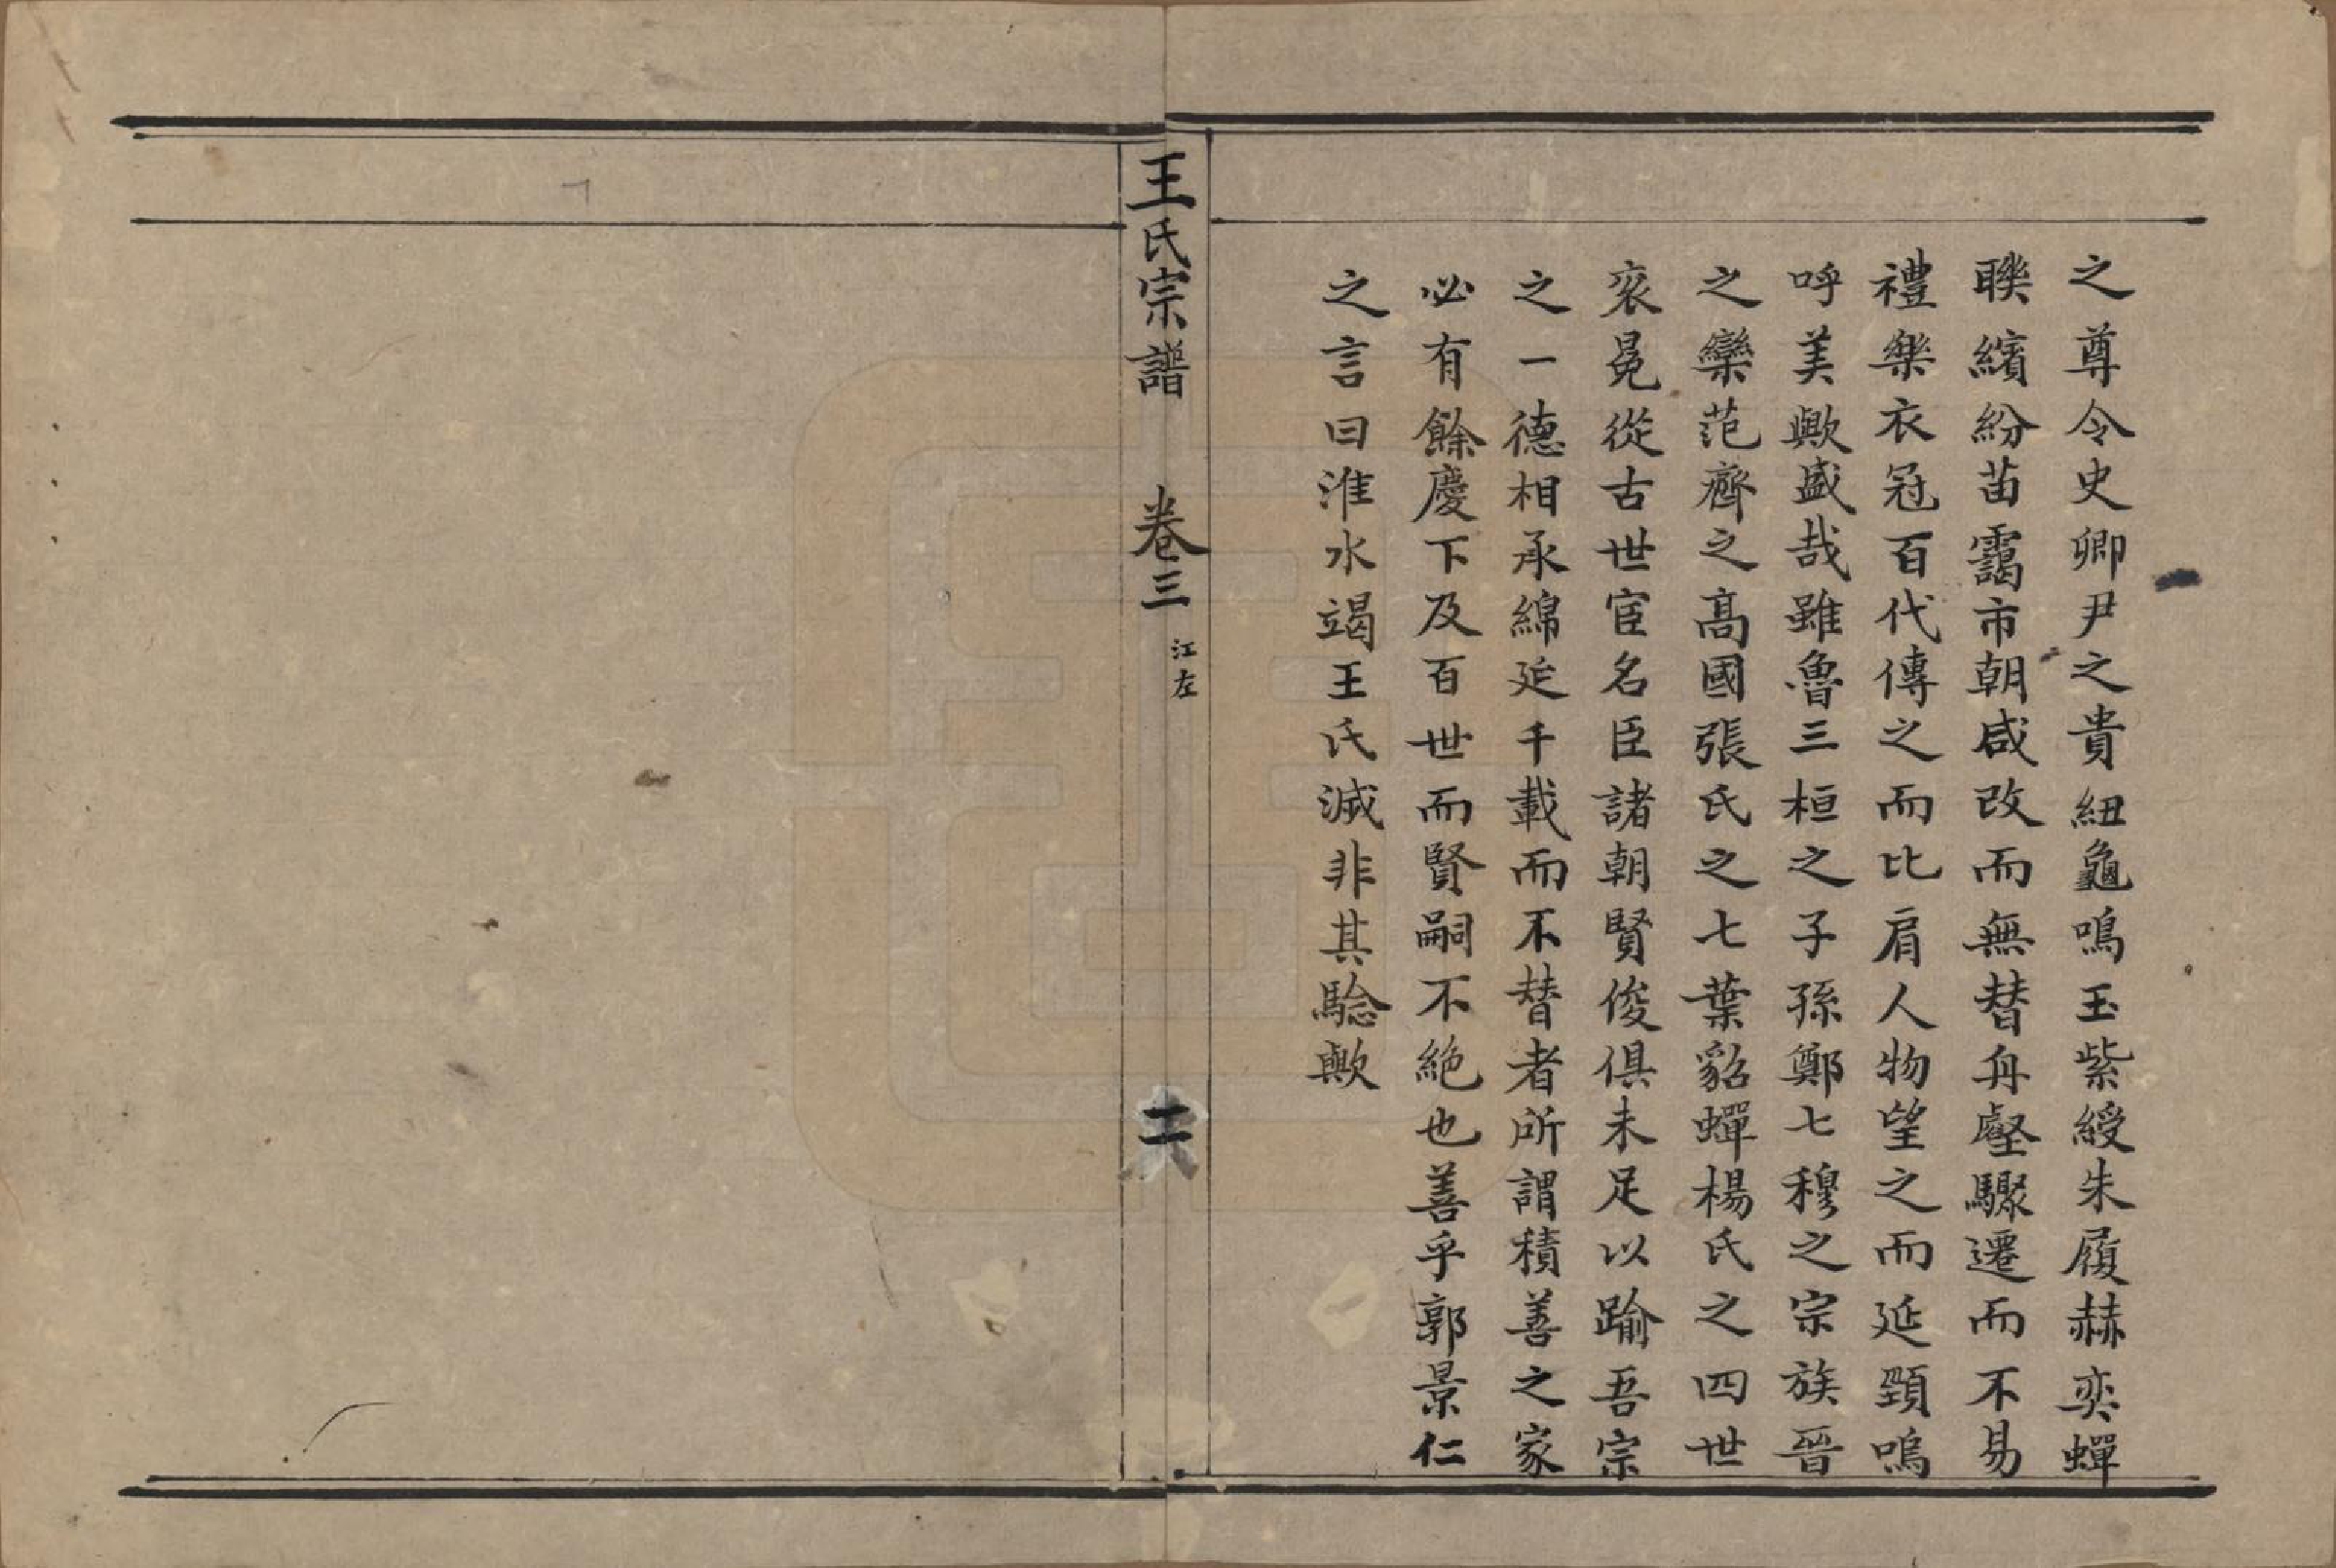 之尊令史卿尹之貴紐龜鳴玉紫綬朱履赫奕蟬
聨繽紛苗靄市朝咸改而無替舟壑驟遷而不易
禮樂衣冠百代傳之而比肩人物望之而延頸嗚
呼美歟盛哉雖魯三桓之子孫鄭七穆之宗族晉
之欒范齊之高國張氏之七葉貂蟬楊氏之四世
衮冕從古世宦名臣諸朝賢俊俱未足以踰吾宗
之一德相承綿延千載而不替者所謂積善之家
必有餘慶下及百世而賢嗣不絕也善乎郭景仁
之言曰淮水竭王氏滅非其騐歟
王氏宗譜 卷三 江左